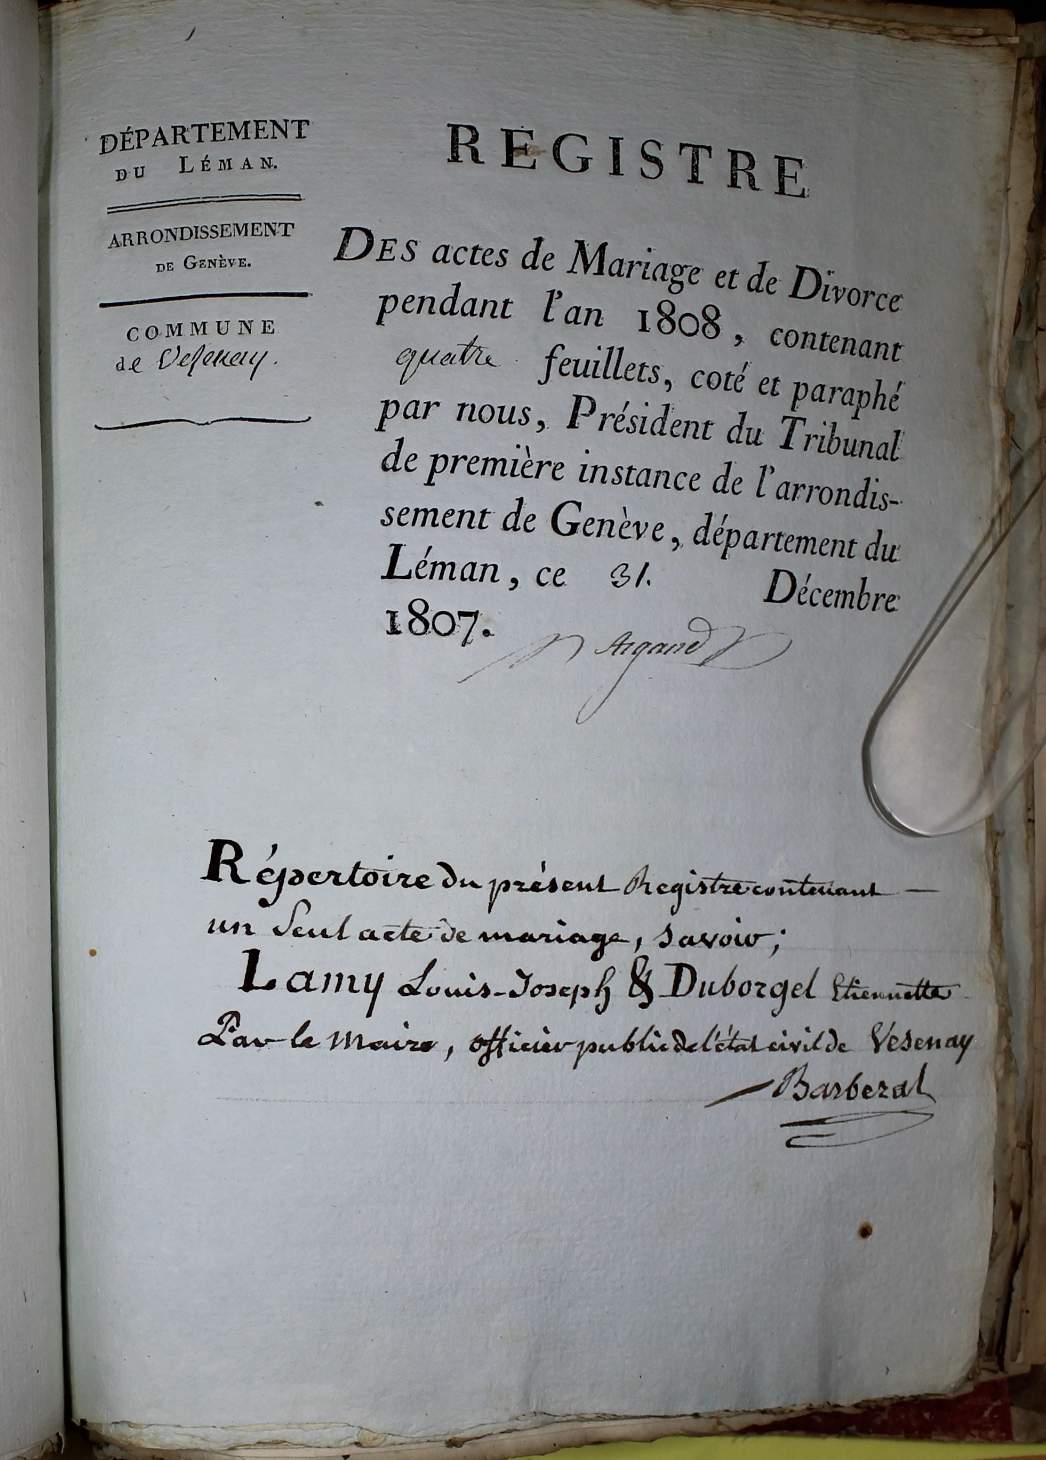 DÉPARTEMENT
DU LÉMAN.
ARRONDISSEMENT
DE GENÈVE.
COMMUNE
de Vesenay.
REGISTRE
DES actes de Mariage et de Divorce
pendant l'an 1808, contenant
quatre feuillets, coté et paraphé
par nous, Président du Tribunal
de première instance de l'arrondis-
sement de Genève, département du
Léman, ce 31. Décembre
1807.
Argand
Répertoire du présent Registre contenant —
un Seul acte de mariage, Savoir;
Lamy Louis-Joseph & Duborgel Etiennette
Par le Maire, officier public de l'état civil de Vesenay
Barberat